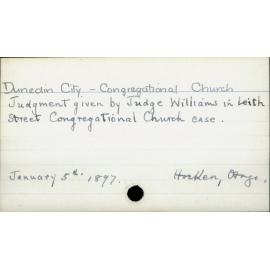 Dunedin City - Congregational Church
Judgment given by Judge Williams in Leith
Street Congregational Church case.
January 5th. 1897. Hocken, Otago.